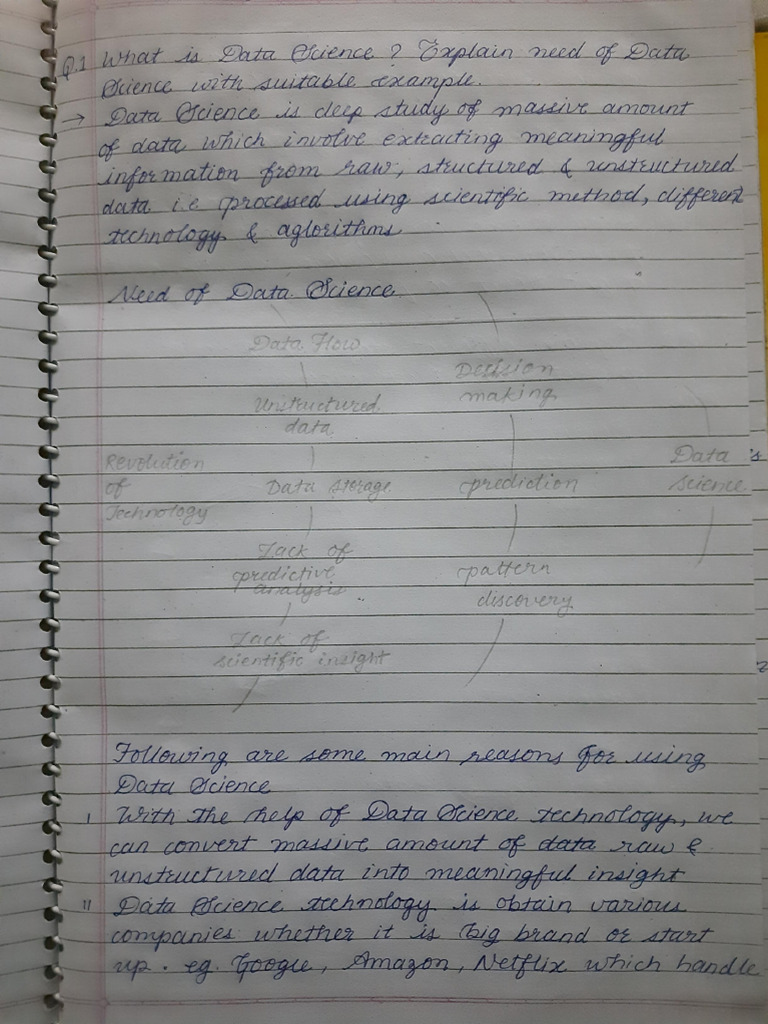 Q.1 What is Data Science ? Explain need of Data
Science with suitable example.
→ Data Science is deep study of massive amount
of data which involve extracting meaningful
information from raw, structured & unstructured
data i.e processed using scientific method, different
technology & aglorithms
Need of Data Science
Data Flow
Unstructured
data
Data storage
Lack of
predictive
analysis
Lack of
scientific insight
Revolution
of
Technology
Decision
making
prediction
pattern
discovery
Data
science
Following are some main reasons for using
Data Science
I With the help of Data Science technology, we
can convert massive amount of data raw &
unstructured data into meaningful insight
II Data Science technology is obtain various
companies whether it is big brand or start
up. eg. Google, Amazon, Netflix which handle